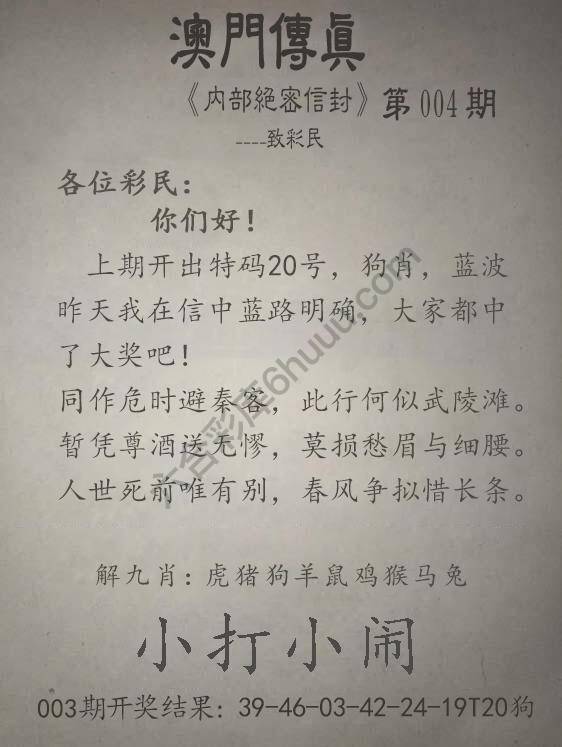 澳門傳真
《内部絕密信封》第004期
----致彩民
各位彩民：
你们好！
上期开出特码20号，狗肖，蓝波
昨天我在信中蓝路明确，大家都中
了大奖吧！
同作危时避秦客，此行何似武陵滩。
暂凭尊酒送无憀，莫损愁眉与细腰。
人世死前唯有别，春风争拟惜长条。
解九肖：虎猪狗羊鼠鸡猴马兔
小打小闹
003期开奖结果：39-46-03-42-24-19T20狗
六合彩库6huuu.com